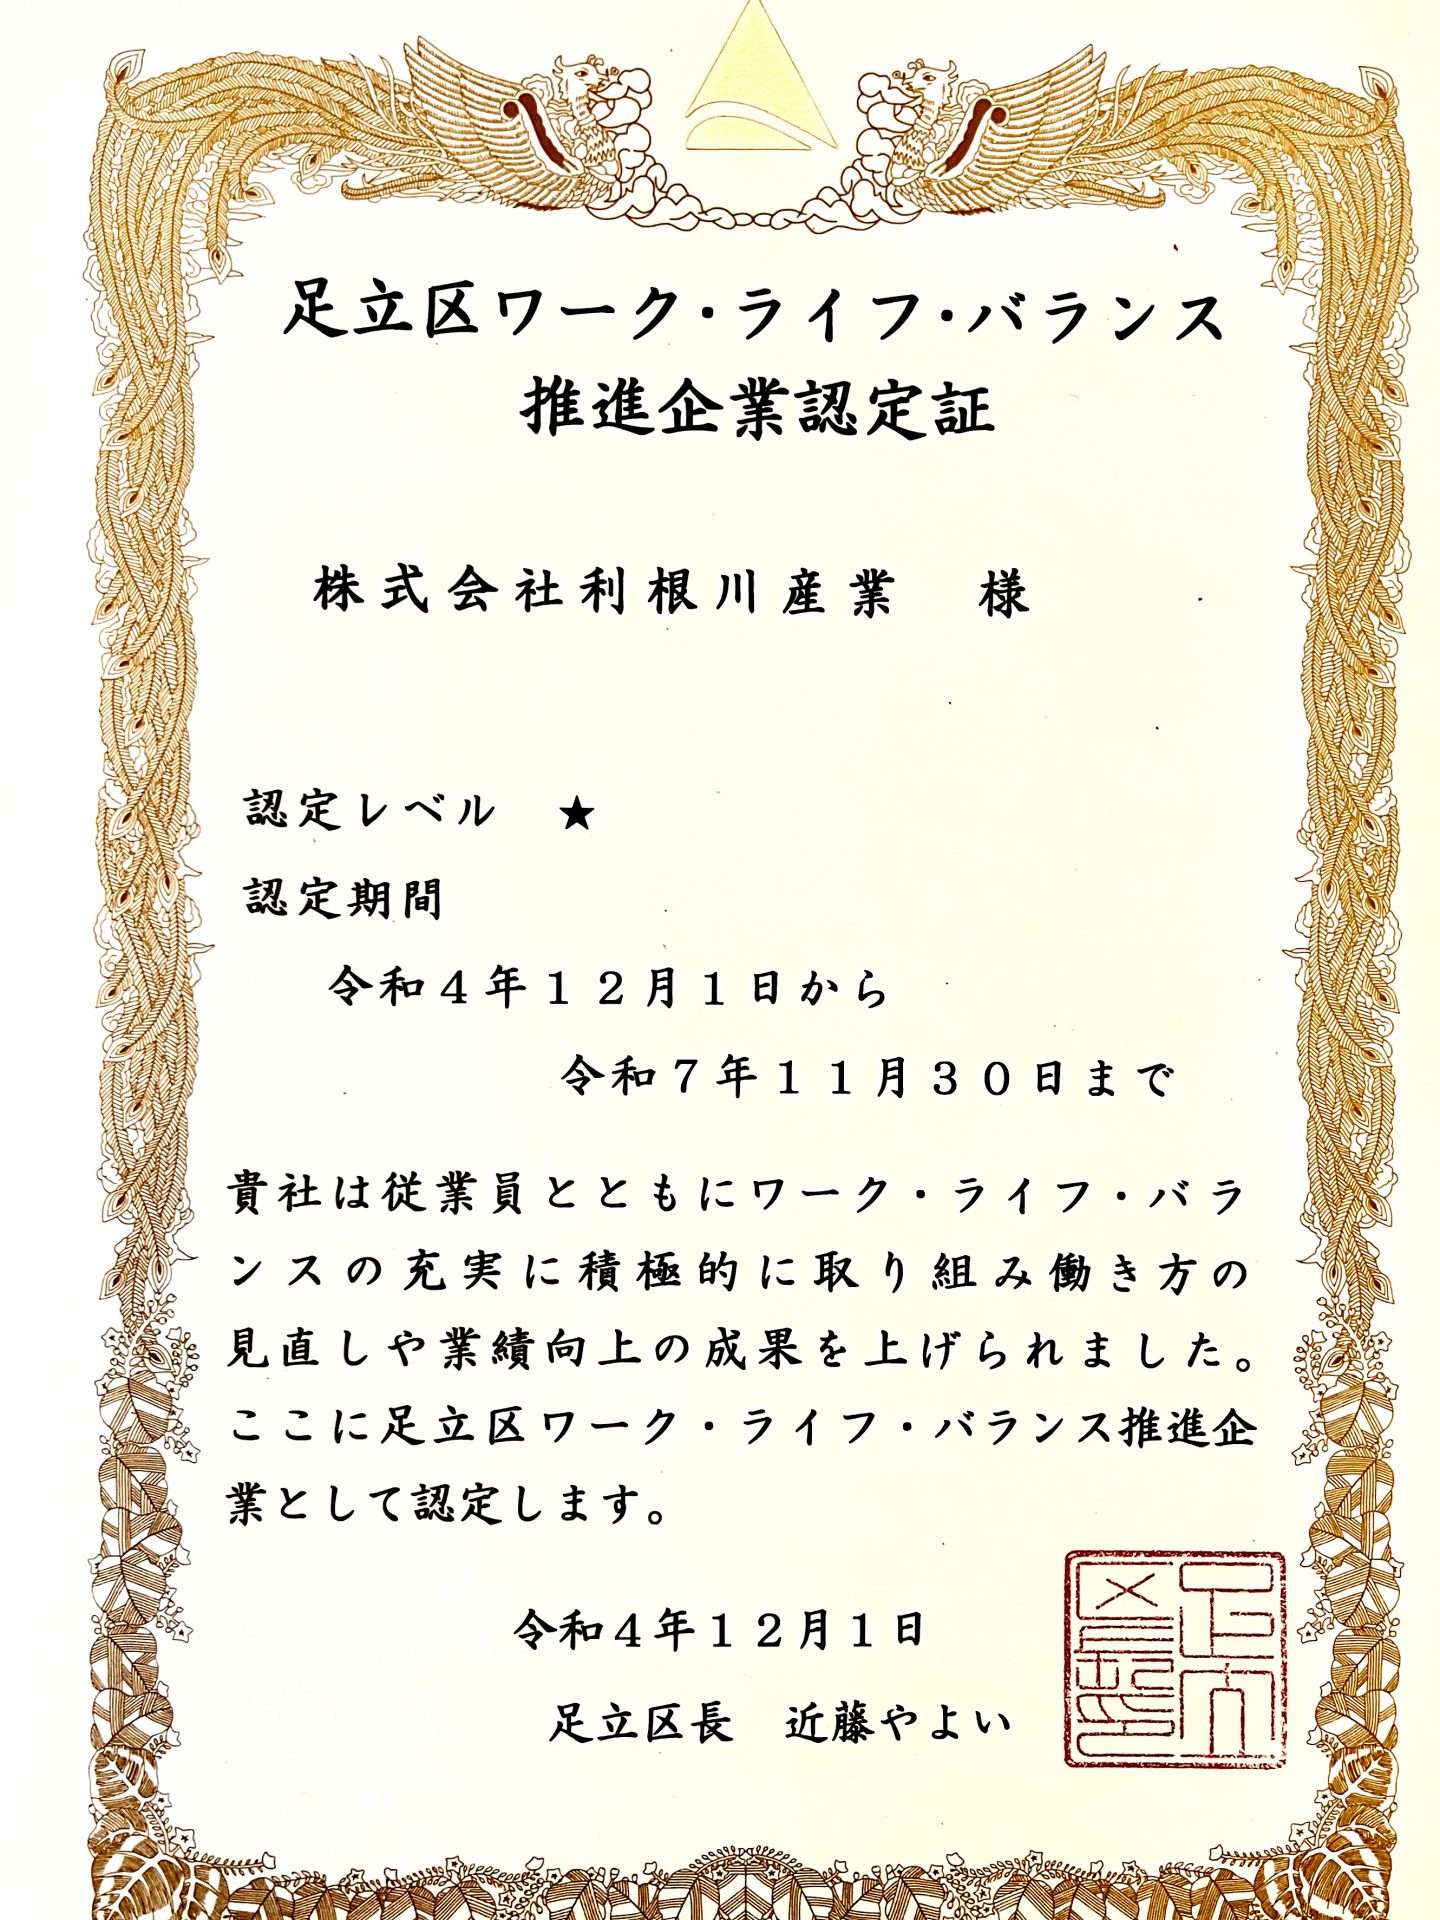 足立区ワーク・ライフ・バランス
推進企業認定証
株式会社利根川産業　様
認定レベル　★
認定期間
令和４年１２月１日から
令和７年１１月３０日まで
貴社は従業員とともにワーク・ライフ・バラ
ンスの充実に積極的に取り組み働き方の
見直しや業績向上の成果を上げられました。
ここに足立区ワーク・ライフ・バランス推進企
業として認定します。
令和４年１２月１日
足立区長　近藤やよい
足立
区長印